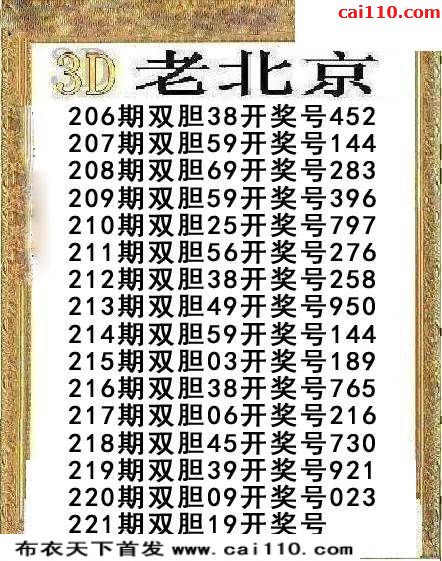 cai110.com
3D 老北京
206期双胆38开奖号452
207期双胆59开奖号144
208期双胆69开奖号283
209期双胆59开奖号396
210期双胆25开奖号797
211期双胆56开奖号276
212期双胆38开奖号258
213期双胆49开奖号950
214期双胆59开奖号144
215期双胆03开奖号189
216期双胆38开奖号765
217期双胆06开奖号216
218期双胆45开奖号730
219期双胆39开奖号921
220期双胆09开奖号023
221期双胆19开奖号
布衣天下首发 www.cai110.com